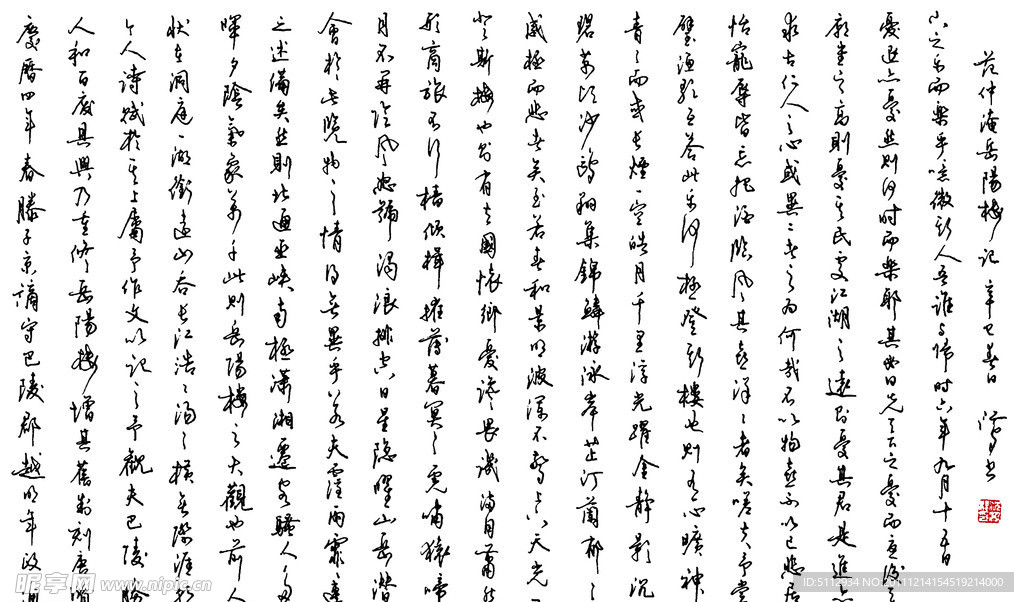 慶曆四年春滕子京謫守巴陵郡越明年政通
人和百廢具興乃重修岳陽樓增其舊制刻唐賢
今人詩賦於其上屬予作文以記之予觀夫巴陵勝
狀在洞庭一湖銜遠山吞長江浩浩湯湯橫無際涯朝
暉夕陰氣象萬千此則岳陽樓之大觀也前人
之述備矣然則北通巫峽南極瀟湘遷客騷人多
會於此覽物之情得無異乎若夫霪雨霏霏連
月不開陰風怒號濁浪排空日星隱曜山岳潛
形商旅不行檣傾楫摧薄暮冥冥虎嘯猿啼
登斯樓也則有去國懷鄉憂讒畏譏滿目蕭然
感極而悲者矣至若春和景明波瀾不驚上下天光一
碧萬頃沙鷗翔集錦鱗游泳岸芷汀蘭郁郁
青青而或長煙一空皓月千里浮光躍金靜影沉
璧漁歌互答此樂何極登斯樓也則有心曠神
怡寵辱皆忘把酒臨風其喜洋洋者矣嗟夫予嘗
求古仁人之心或異二者之為何哉不以物喜不以己悲居
廟堂之高則憂其民處江湖之遠則憂其君是進亦
憂退亦憂然則何時而樂耶其必曰先天下之憂而憂後天
下之樂而樂乎噫微斯人吾誰與歸時六年九月十五日
范仲淹岳陽樓記 辛巳春日 書
昵享网 www.nipic.cn
ID:5112934 NO:20111214154519214000